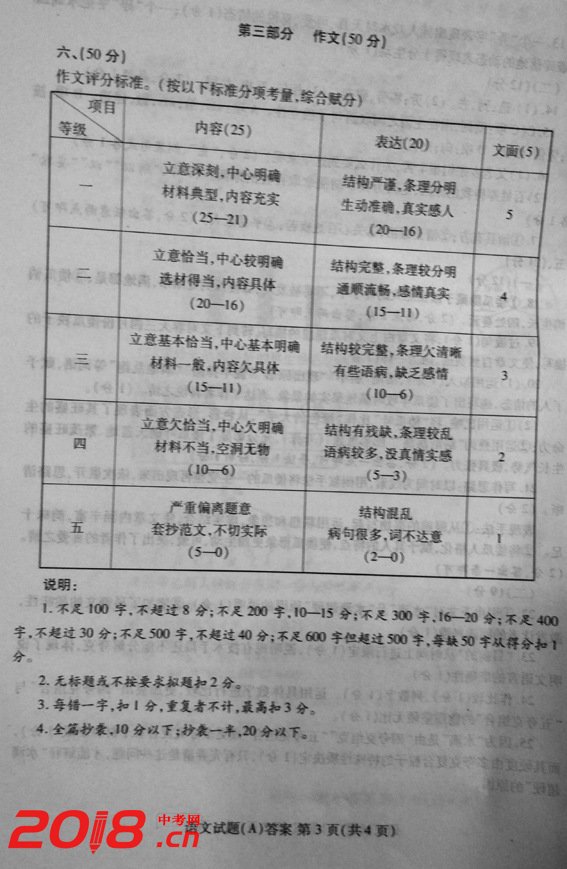 第三部分 作文(50分)
六、(50分)
作文评分标准。(按以下标准分项考量,综合赋分)
项目
等级
内容(25)
表达(20)
文面(5)
一
立意深刻,中心明确
材料典型,内容充实
(25—21)
结构严谨,条理分明
生动准确,真实感人
(20—16)
5
二
立意恰当,中心较明确
选材得当,内容具体
(20—16)
结构完整,条理较分明
通顺流畅,感情真实
(15—11)
4
三
立意基本恰当,中心基本明确
材料一般,内容欠具体
(15—11)
结构较完整,条理欠清晰
有些语病,缺乏感情
(10—6)
3
四
立意欠恰当,中心欠明确
材料不当,空洞无物
(10—6)
结构有残缺,条理较乱
语病较多,没真情实感
(5—3)
2
五
严重偏离题意
套抄范文,不切实际
(5—0)
结构混乱
病句很多,词不达意
(2—0)
1
说明:
1.不足100字,不超过8分;不足200字,10—15分;不足300字,16—20分;不足400
字,不超过30分;不足500字,不超过40分;不足600字但超过500字,每缺50字从得分扣1
分。
2.无标题或不按要求拟题扣2分。
3.每错一字,扣1分,重复者不计,最高扣3分。
4.全篇抄袭,10分以下;抄袭一半,20分以下。
2018.cn
中考网
语文试题(A)答案 第3页(共4页)